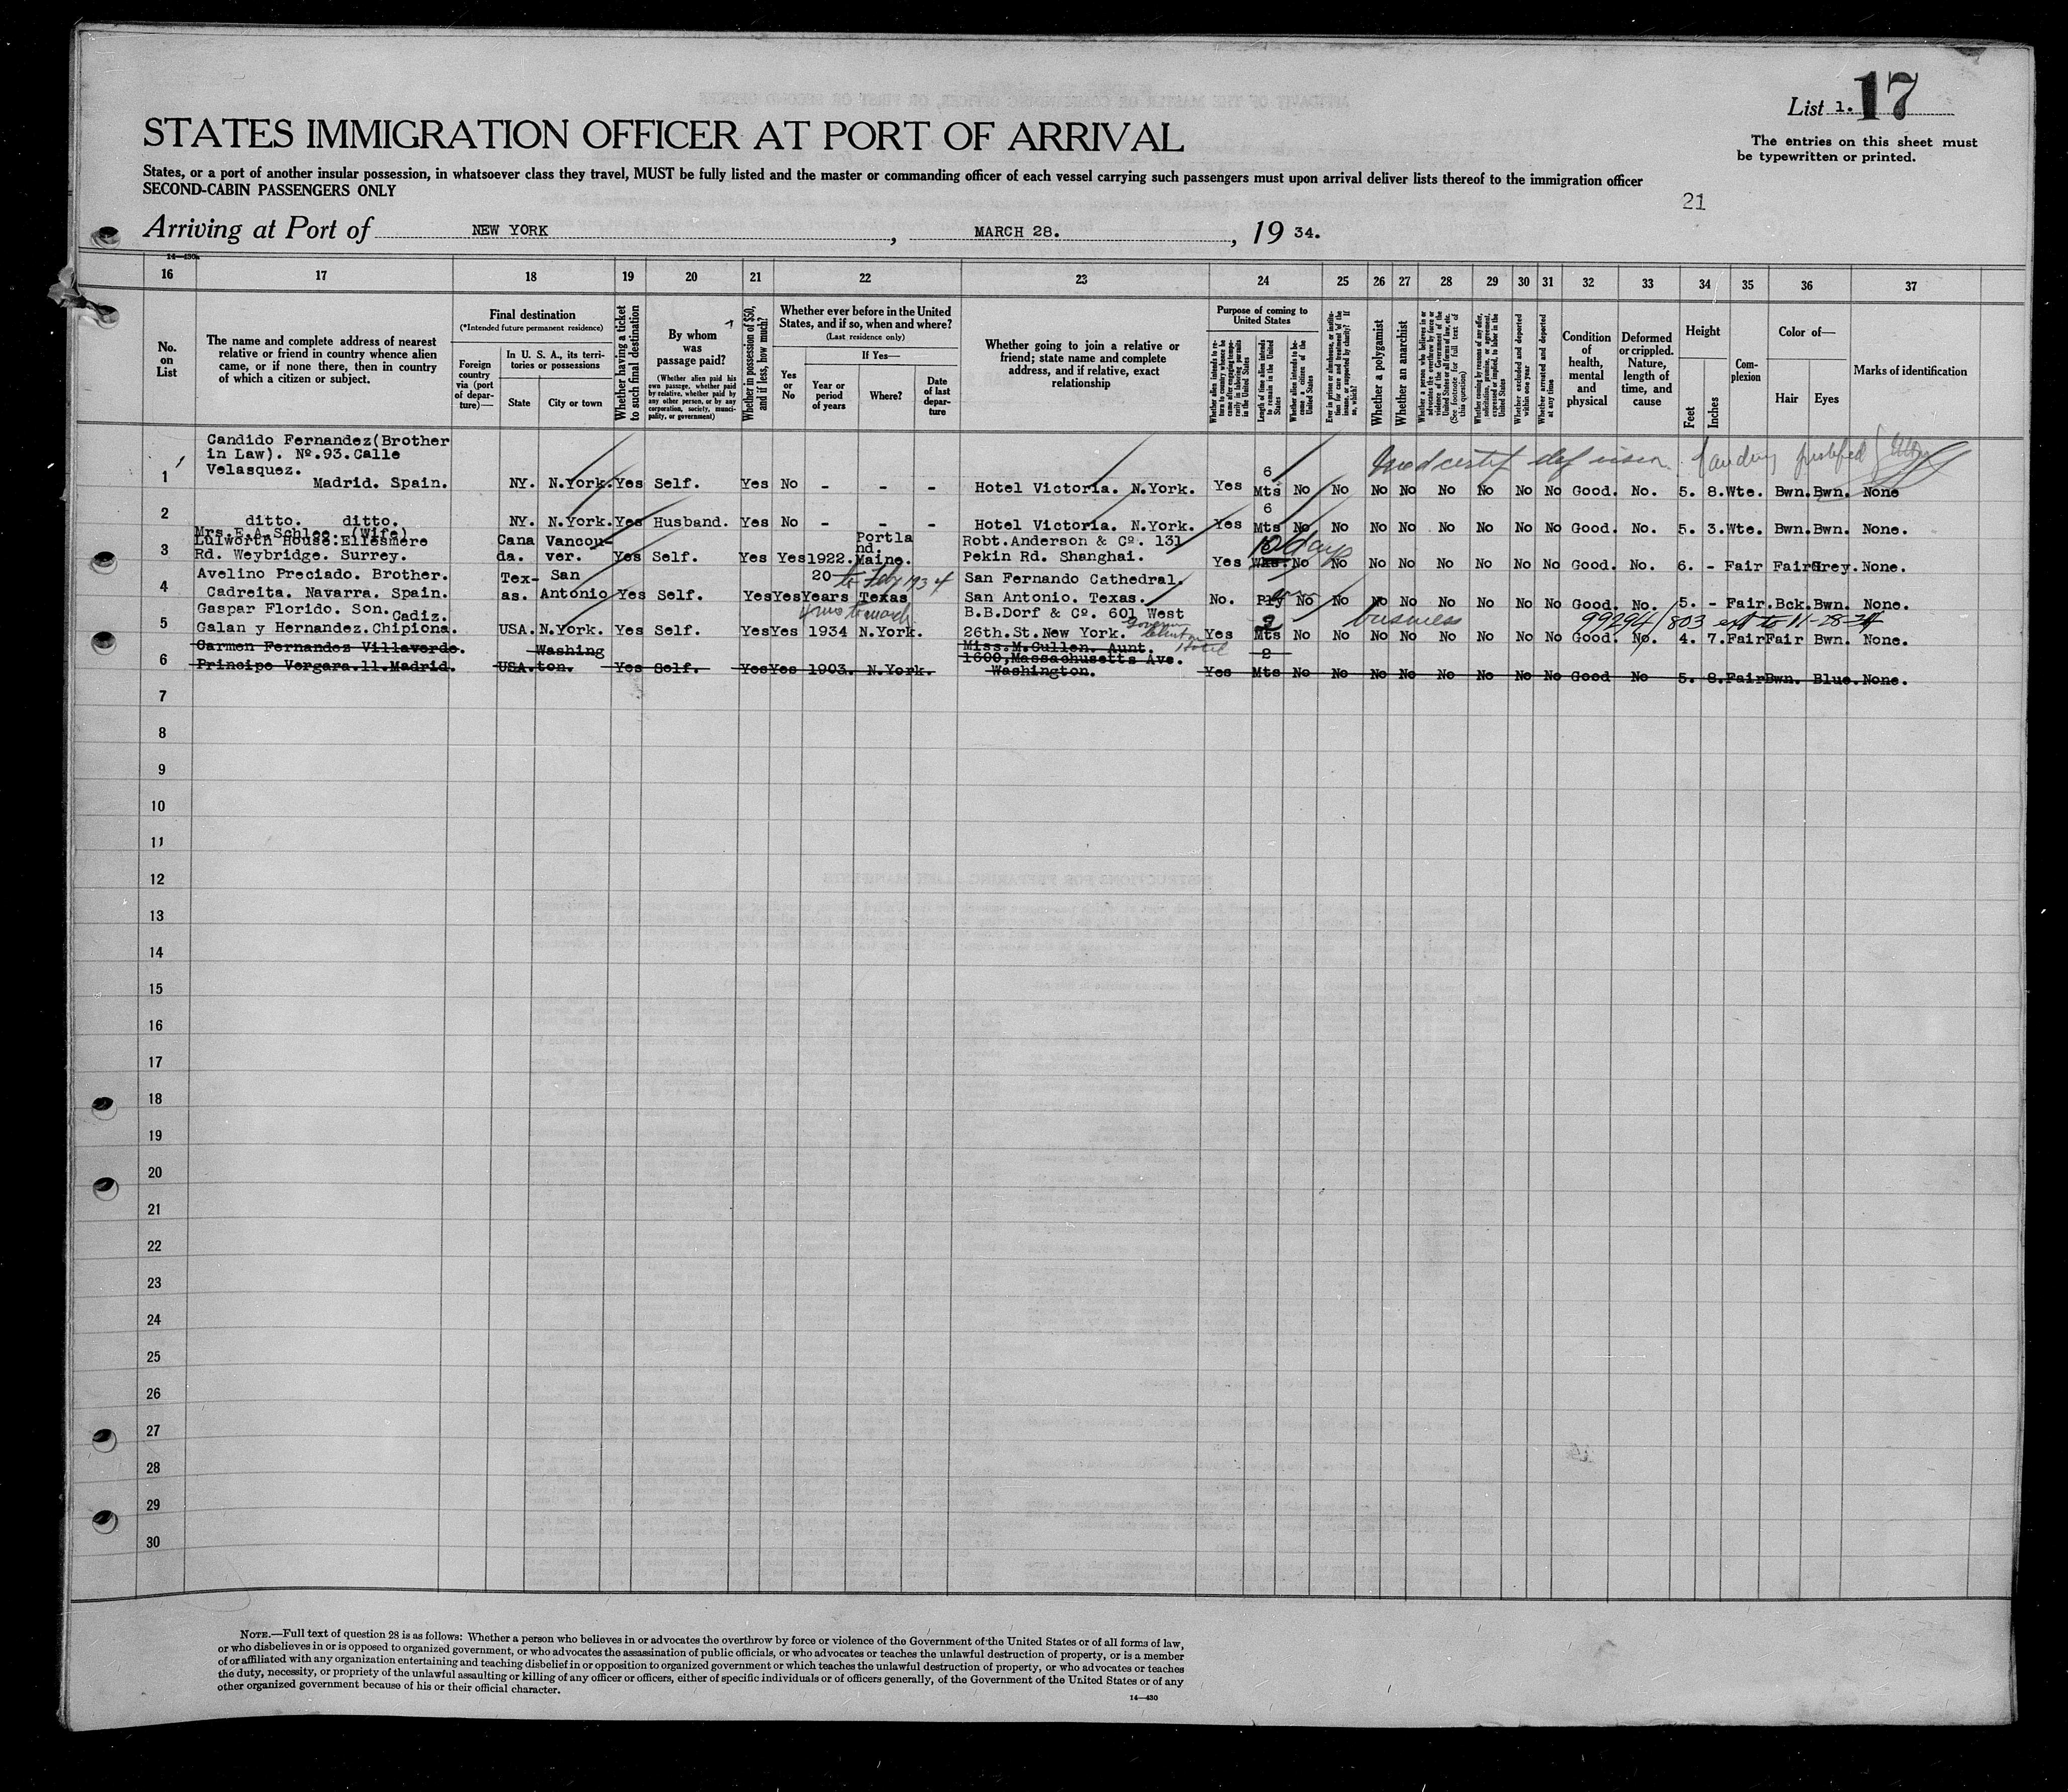 List 1. 17
STATES IMMIGRATION OFFICER AT PORT OF ARRIVAL
The entries on this sheet must
be typewritten or printed.
States, or a port of another insular possession, in whatsoever class they travel, MUST be fully listed and the master or commanding officer of each vessel carrying such passengers must upon arrival deliver lists thereof to the immigration officer
SECOND-CABIN PASSENGERS ONLY
21
Arriving at Port of NEW YORK, MARCH 28., 19 34.
14—430
16 17 18 19 20 21 22 23 24 25 26 27 28 29 30 31 32 33 34 35 36 37
No. on List
The name and complete address of nearest relative or friend in country whence alien came, or if none there, then in country of which a citizen or subject.
Final destination
(*Intended future permanent residence)
Foreign country via (port of departure)—
In U. S. A., its territories or possessions
State
City or town
Whether having a ticket to such final destination
By whom was passage paid?
(Whether alien paid his own passage, whether paid by relative, whether paid by any other person, or by any corporation, society, municipality, or government)
Whether in possession of $50, and if less, how much?
Whether ever before in the United States, and if so, when and where?
(Last residence only)
Yes or No
If Yes—
Year or period of years
Where?
Date of last departure
Whether going to join a relative or friend; state name and complete address, and if relative, exact relationship
Purpose of coming to United States
Whether alien intends to return to country whence he came after engaging temporarily in laboring pursuits in the United States
Length of time alien intends to remain in the United States
Whether alien intends to become a citizen of the United States
Ever in prison or almshouse, or institution for care and treatment of the insane, or supported by charity? If so, which?
Whether a polygamist
Whether an anarchist
Whether a person who believes in or advocates the overthrow by force or violence of the Government of the United States or all forms of law, etc. (See footnote for full text of this question)
Whether coming by reasons of any offer, solicitation, promise, or agreement, expressed or implied, to labor in the United States
Whether excluded and deported within one year
Whether arrested and deported at any time
Condition of health, mental and physical
Deformed or crippled. Nature, length of time, and cause
Height
Feet
Inches
Complexion
Color of—
Hair
Eyes
Marks of identification
Candido Fernandez(Brother
in Law). Nº.93.Calle
Velasquez.
1 Madrid. Spain. NY. N.York. Yes Self. Yes No - - - Hotel Victoria. N.York. Yes 6 Mts No No No No No No No No Good. No. 5. 8. Wte. Bwn. Bwn. None
2 ditto. ditto. NY. N.York. Yes Husband. Yes No - - - Hotel Victoria. N.York. Yes 6 Mts No No No No No No No No Good. No. 5. 3. Wte. Bwn. Bwn. None.
Mrs.E.A.Schlee. (Wife)
Lulworth House.Ellesmere Cana Vancou- Portla nd. Robt.Anderson & Cº. 131
3 Rd. Weybridge. Surrey. da. ver. Yes Self. Yes Yes 1922. Maine. Pekin Rd. Shanghai. Yes 10 days No No No No No No No No Good. No. 6. - Fair Fair Grey. None.
Avelino Preciado. Brother. Tex- San 20 to Feby 1934 San Fernando Cathedral.
4 Cadreita. Navarra. Spain. as. Antonio Yes Self. Yes Yes Years Texas San Antonio. Texas. No. Ply No No No No No No No No Good. No. 5. - Fair. Bck. Bwn. None.
Gaspar Florido. Son. Cadiz. B.B.Dorf & Cº. 601 West business 99294/803 ext to 11-28-34
5 Galan y Hernandez.Chipiona. USA. N.York. Yes Self. Yes Yes 1934 N.York. 26th.St.New York. Yes 2 Mts No No No No No No No No Good. No. 4. 7. Fair Fair Bwn. None.
Carmen Fernandez Villaverde. Washing Miss.M.Cullen. Aunt. Hotel
6 Principe Vergara.11.Madrid. USA. ton. Yes Self. Yes Yes 1903. N.York. 1600,Massachusetts Ave. Washington. Yes 2 Mts No No No No No No No No Good No 5. 8. Fair Bwn. Blue. None.
7
8
9
10
11
12
13
14
15
16
17
18
19
20
21
22
23
24
25
26
27
28
29
30
NOTE.—Full text of question 28 is as follows: Whether a person who believes in or advocates the overthrow by force or violence of the Government of the United States or of all forms of law,
or who disbelieves in or is opposed to organized government, or who advocates the assassination of public officials, or who advocates or teaches the unlawful destruction of property, or is a member
of or affiliated with any organization entertaining and teaching disbelief in or opposition to organized government or which teaches the unlawful destruction of property, or who advocates or teaches
the duty, necessity, or propriety of the unlawful assaulting or killing of any officer or officers, either of specific individuals or of officers generally, of the Government of the United States or of any
other organized government because of his or their official character.
14—430